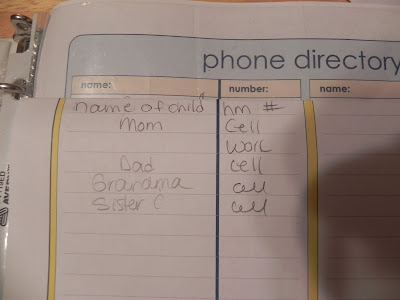 phone directory
name: number: name:
name of child hm #
Mom Cell
Work
Dad cell
Grandma cell
Sister C cell
AVERY